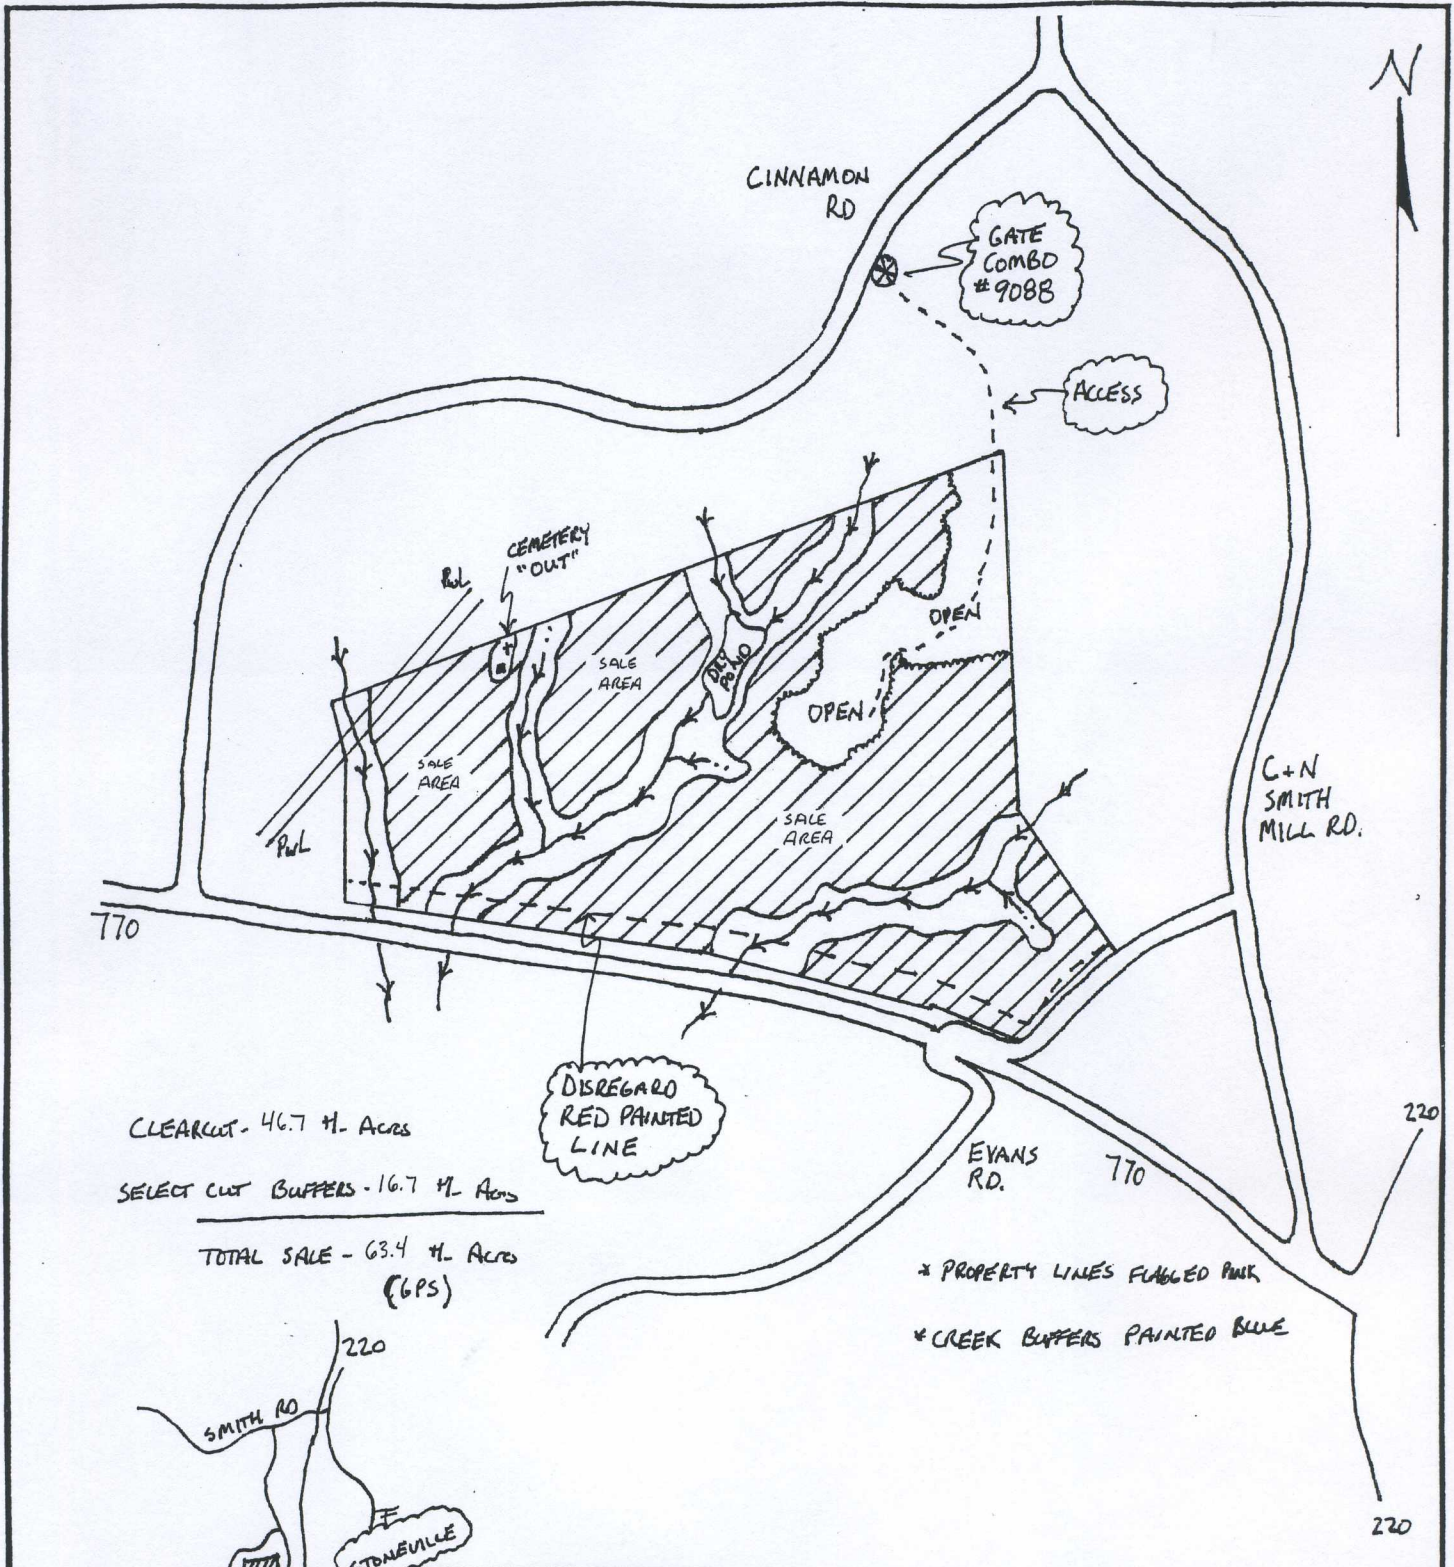 N
CINNAMON
RD
GATE
COMBO
#9088
ACCESS
CEMETERY
"OUT"
PWL
OPEN
SALE
AREA
DRY
POND
OPEN
SALE
AREA
SALE
AREA
PWL
C+N
SMITH
MILL RD.
770
DISREGARD
RED PAINTED
LINE
CLEARCUT - 46.7 +/- ACRES
SELECT CUT BUFFERS - 16.7 +/- ACRES
TOTAL SALE - 63.4 +/- ACRES
(GPS)
EVANS
RD.
770
220
* PROPERTY LINES FLAGGED PINK
* CREEK BUFFERS PAINTED BLUE
220
SMITH RD
STONEVILLE
220